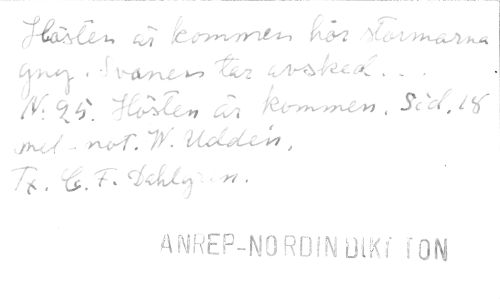 Hösten är kommen hör stormarna
gny. Svanen tar avsked...
N: 95. Hösten är kommen. Sid. 18
mel - not. W. Uddén.
Tx. C. F. Dahlgren.
ANREP-NORDIN DIKT TON